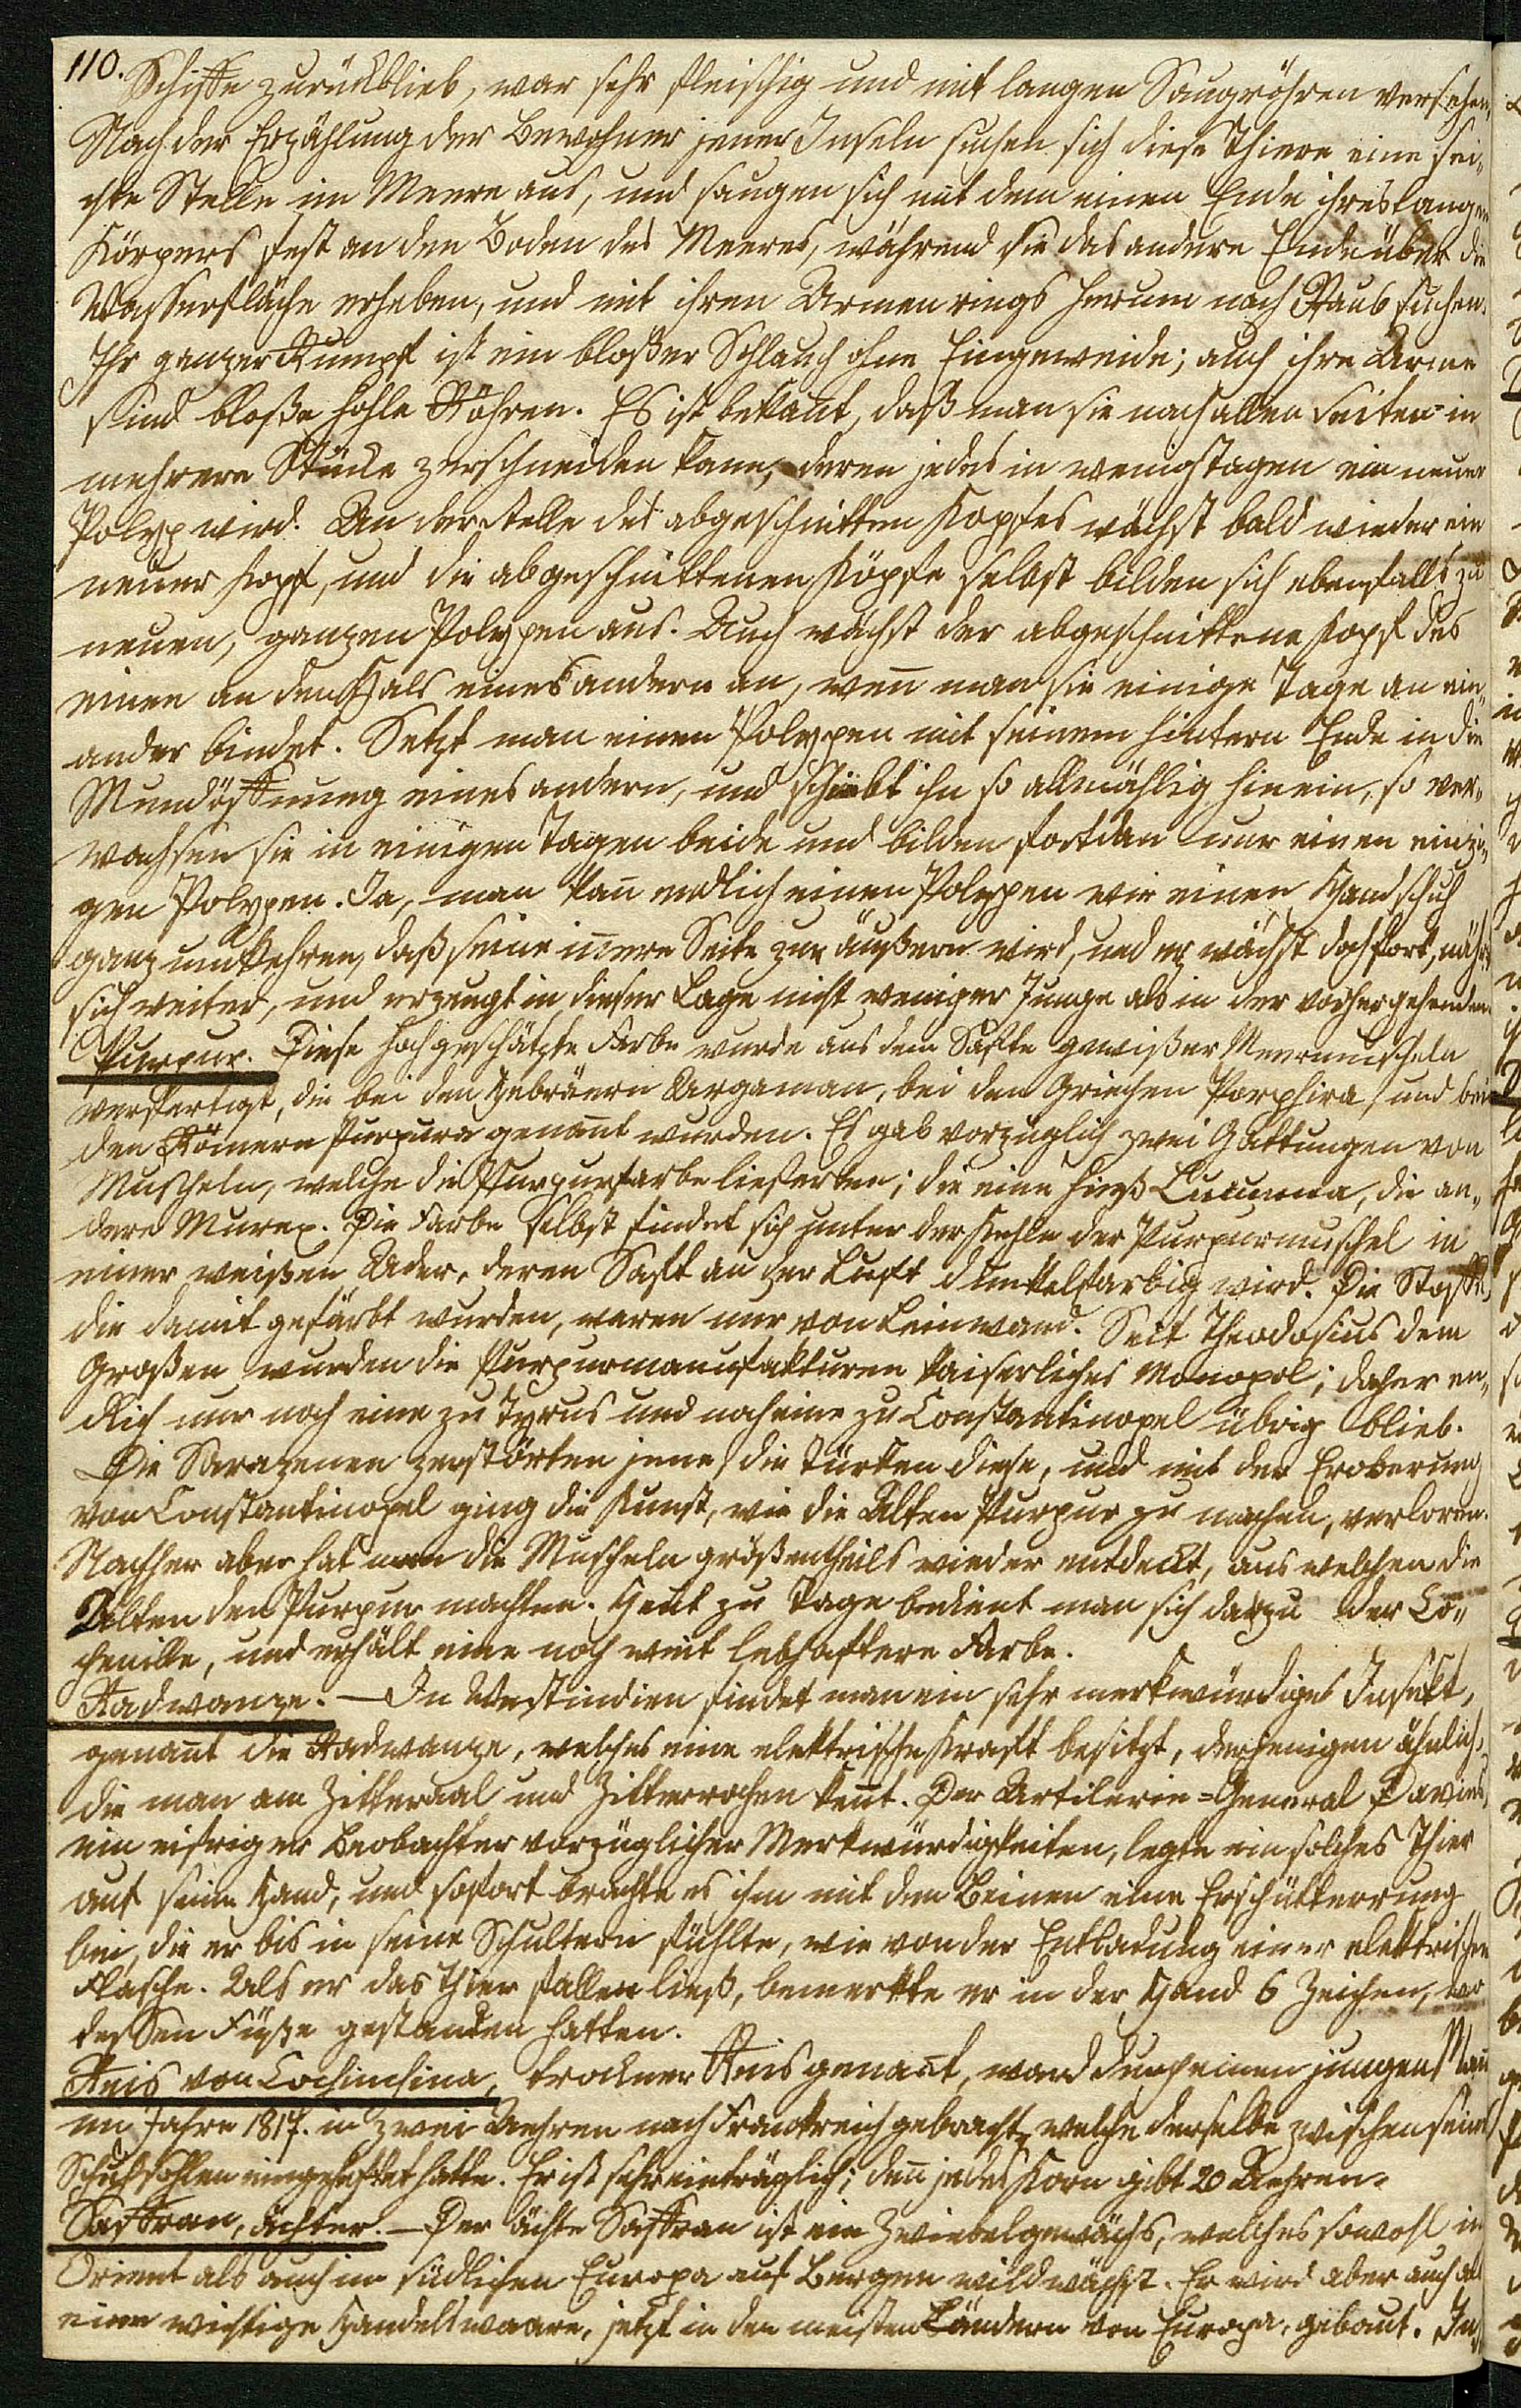 110.
Schiffe zurückblieb, war sehr fleischig und mit langen Saugröhren versehen.
Nach der Erzählung der Bewohner jener Inseln suchen sich diese Thiere eine sei„
chte Stelle im Meere aus, und saugen sich mit dem einen Ende ihres langen
Körpers fest an den Boden des Meeres, während sie das andere Ende über die
Wasserfläche erheben, und mit ihren Armen rings herum nach Raub suchen.
Ihr ganzer Rumpf ist ein bloßer Schlauch ohne Eingeweide; auch ihre Arme
sind bloße hohle Röhren. Es ist bekañt, daß man sie nach allen Seiten in
mehrere Stücke zerschneiden kann, deren jedes in wenig Tagen ein neuer
Polyp wird. An der Stelle des abgeschnitten Kopfes wächst bald wieder ein
neuer Kopf, und die abgeschnittenen Köpfe selbst bilden sich ebenfalls zu
neuen, ganzen Polypen aus. Auch wächst der abgeschnittene Kopf des
einen an den Hals eines andern an, weñ man sie einige Tage an ein„
ander bindet. Setzt man einen Polypen mit seinem hintern Ende in die
Mundöffnung eines andern, und schiebt ihn so allmählig hinein, so ver„
wachsen sie in einigen Tagen beide und bilden fortdan nur einen einzi„
gen Polypen. Ja, man kañ endlich einen Polypen wie einen Handschuh
ganz umkehren, daß seine iñere Seite zur äußern wird, und er wächst doch fort, nährt
sich weiter, und erzeugt in dieser Lage nicht weniger Junge als in der vorhergehenden.
Purpur. Diese hochgeschätzte Farbe wurde aus dem Safte gewißer Meermuscheln
verfertigt, die bei den Hebräern Argaman, bei den Griechen Porphira, und bei
den Römern Purpura genañt wurden. Es gab vorzüglich zwei Gattungen von
Muscheln, welche die Purpurfarbe lieferten; die eine hieß Cucuma, die an„
dere Murex. Die Farbe selbst findet sich unter der Kehle der Purpurmuschel in
einer weißen Ader, deren Saft an der Luft dunkelfarbig wird. Die Stoffe,
die damit gefärbt wurden, waren nur von Leinwand. Seit Theodosius dem
Großen wurden die Purpurmanufakturen kaiserliches Monopol; daher en„
dlich nur noch eine zu Tyrus und noch eine zu Constantinopel übrig blieb.
Die Sarazenen zerstörten jene, die Türken diese, und mit der Eroberung
von Constantinopel ging die Kunst, wie die Alten Purpur zu machen, verloren.
Nachher aber hat man die Muscheln größentheils wieder entdeckt, aus welchen die
Alten den Purpur machten. Heut zu Tage bedient man sich dazu der Co„
chenille, und erhält eine noch weit lebhaftere Farbe.
Radwanze. — In Westindien findet man ein sehr merkwürdiges Insekt,
genañt die Radwanze, welches eine elektrische Kraft besitzt, derjenigen ähnlich,
die man am Zitteraal und Zitterrochen keñt. Der Artilerie-General Davies,
ein eifriger Beobachter vorzüglicher Merkwürdigkeiten, legte ein solches Thier
auf seine Hand, und sofort brachte es ihm mit den Beinen eine Erschütterung
bei, die er bis in seine Schultern fühlte, wie von der Entladung einer elektrischen
Flasche. Als er das Thier fallen ließ, bemerkte er in der Hand 6 Zeichen, wo
dessen Füße gestanden hatten.
Reis von Cochinchina, trockner Reis genañt, ward durch einen jungen Mañ
im Jahre 1817. in zwei Aehren nach Frankreich gebracht, welche derselbe zwischen seine
Schuhsohlen eingeheftet hatte. Er ist sehr einträglich; deñ jedes Korn gibt 20 Aehren.
Saffran, ächter. — Der ächte Saffran ist ein Zwiebelgewächs, welches sowohl im
Orient als auch im südlichen Europa auf Bergen wild wächst. Er wird aber auch als
eine wichtige Handelswaare, jetzt in den meisten Ländern von Europa, gebaut. In